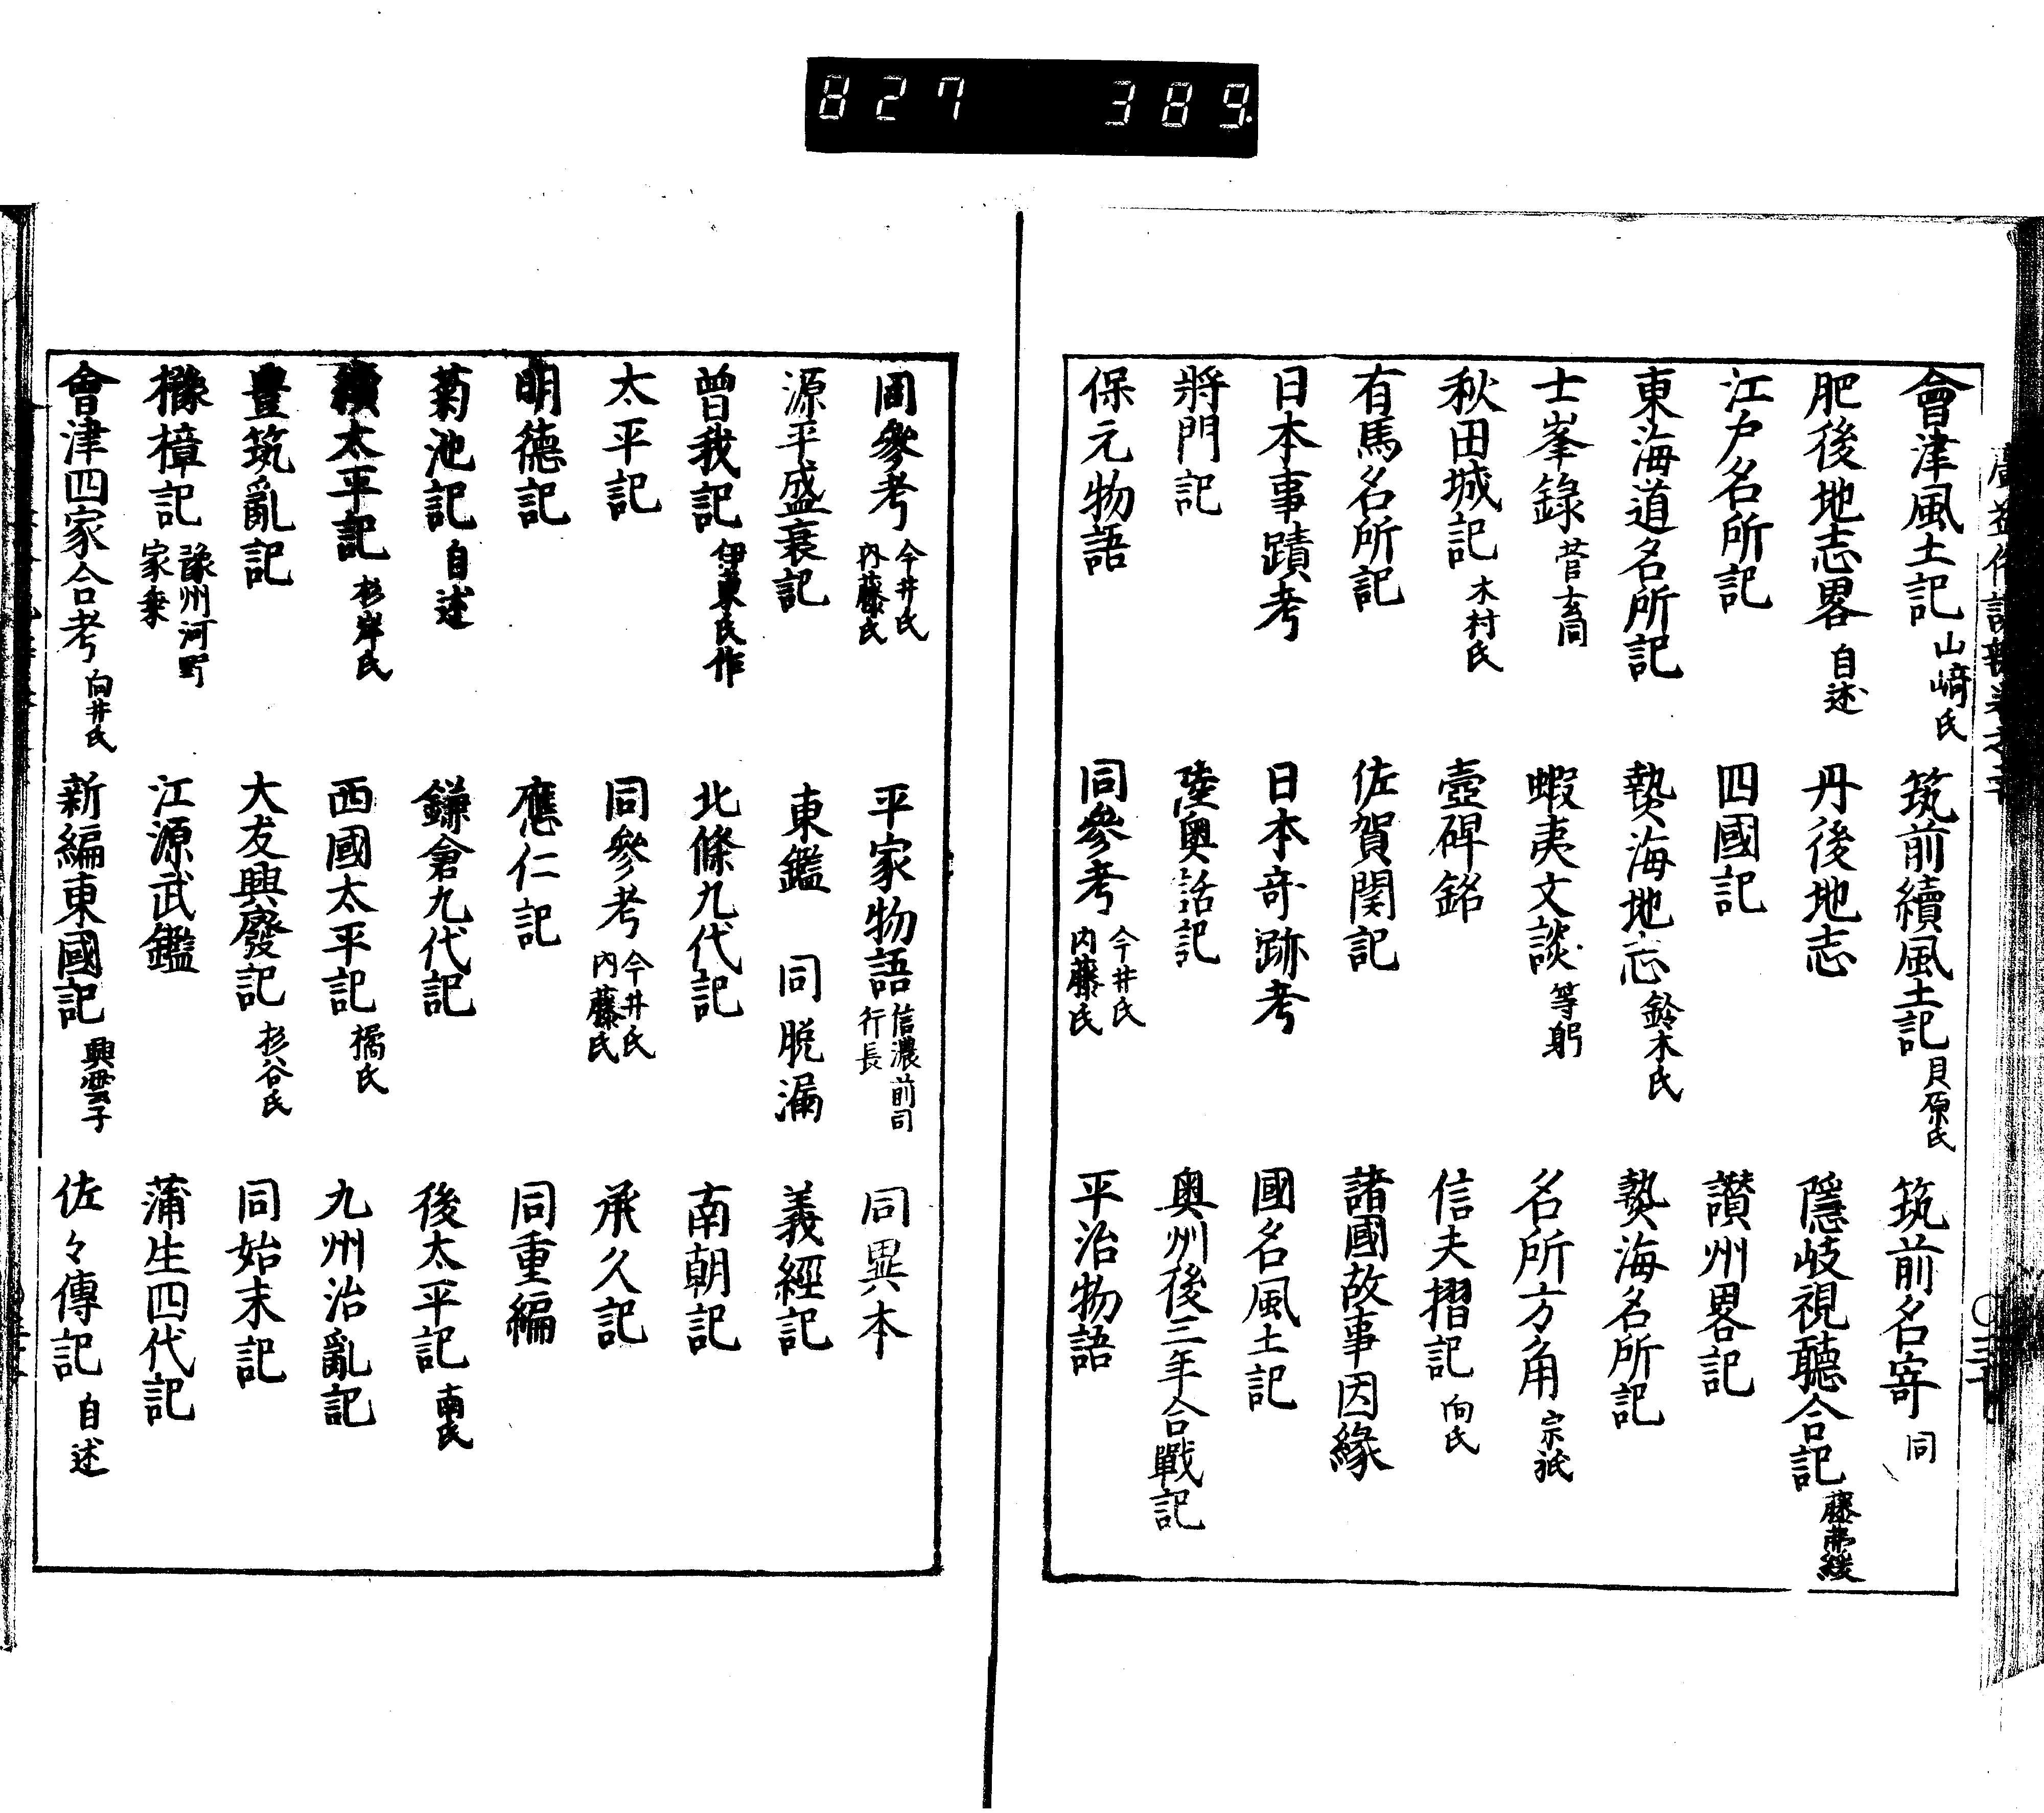 827 389
會津風土記 山﨑氏 筑前續風土記 貝原氏 筑前名寄 同
肥後地志畧 自述 丹後地志 隱岐視聽合記 藤弗緩
江戸名所記 四國記 讃州畧記
東海道名所記 㙯海地志 鈴木氏 㙯海名所記
士峯錄 菅玄同 蝦夷文談 等躬 名所方角 宗祇
秋田城記 木村氏 壺碑銘 信夫摺記 向氏
有馬名所記 佐賀関記 諸國故事因緣
日本事蹟考 日本奇跡考 國名風土記
將門記 陸奥話記 奥州後三年合戰記
保元物語 同參考 今井氏 内藤氏 平治物語
同參考 今井氏 内藤氏 平家物語 信濃前司行長 同異本
源平盛衰記 東鑑 同脱漏 義經記
曽我記 伊東氏作 北條九代記 南朝記
太平記 同參考 今井氏 内藤氏 承久記
明德記 應仁記 同重編
菊池記 自述 鎌倉九代記 後太平記 南氏
續太平記 杉岸氏 西國太平記 橘氏 九州治亂記
豊筑亂記 大友興廢記 杉谷氏 同始末記
櫲樟記 豫州河野家乘 江源武鑑 蒲生四代記
會津四家合考 向井氏 新編東國記 興雲子 佐々傳記 自述